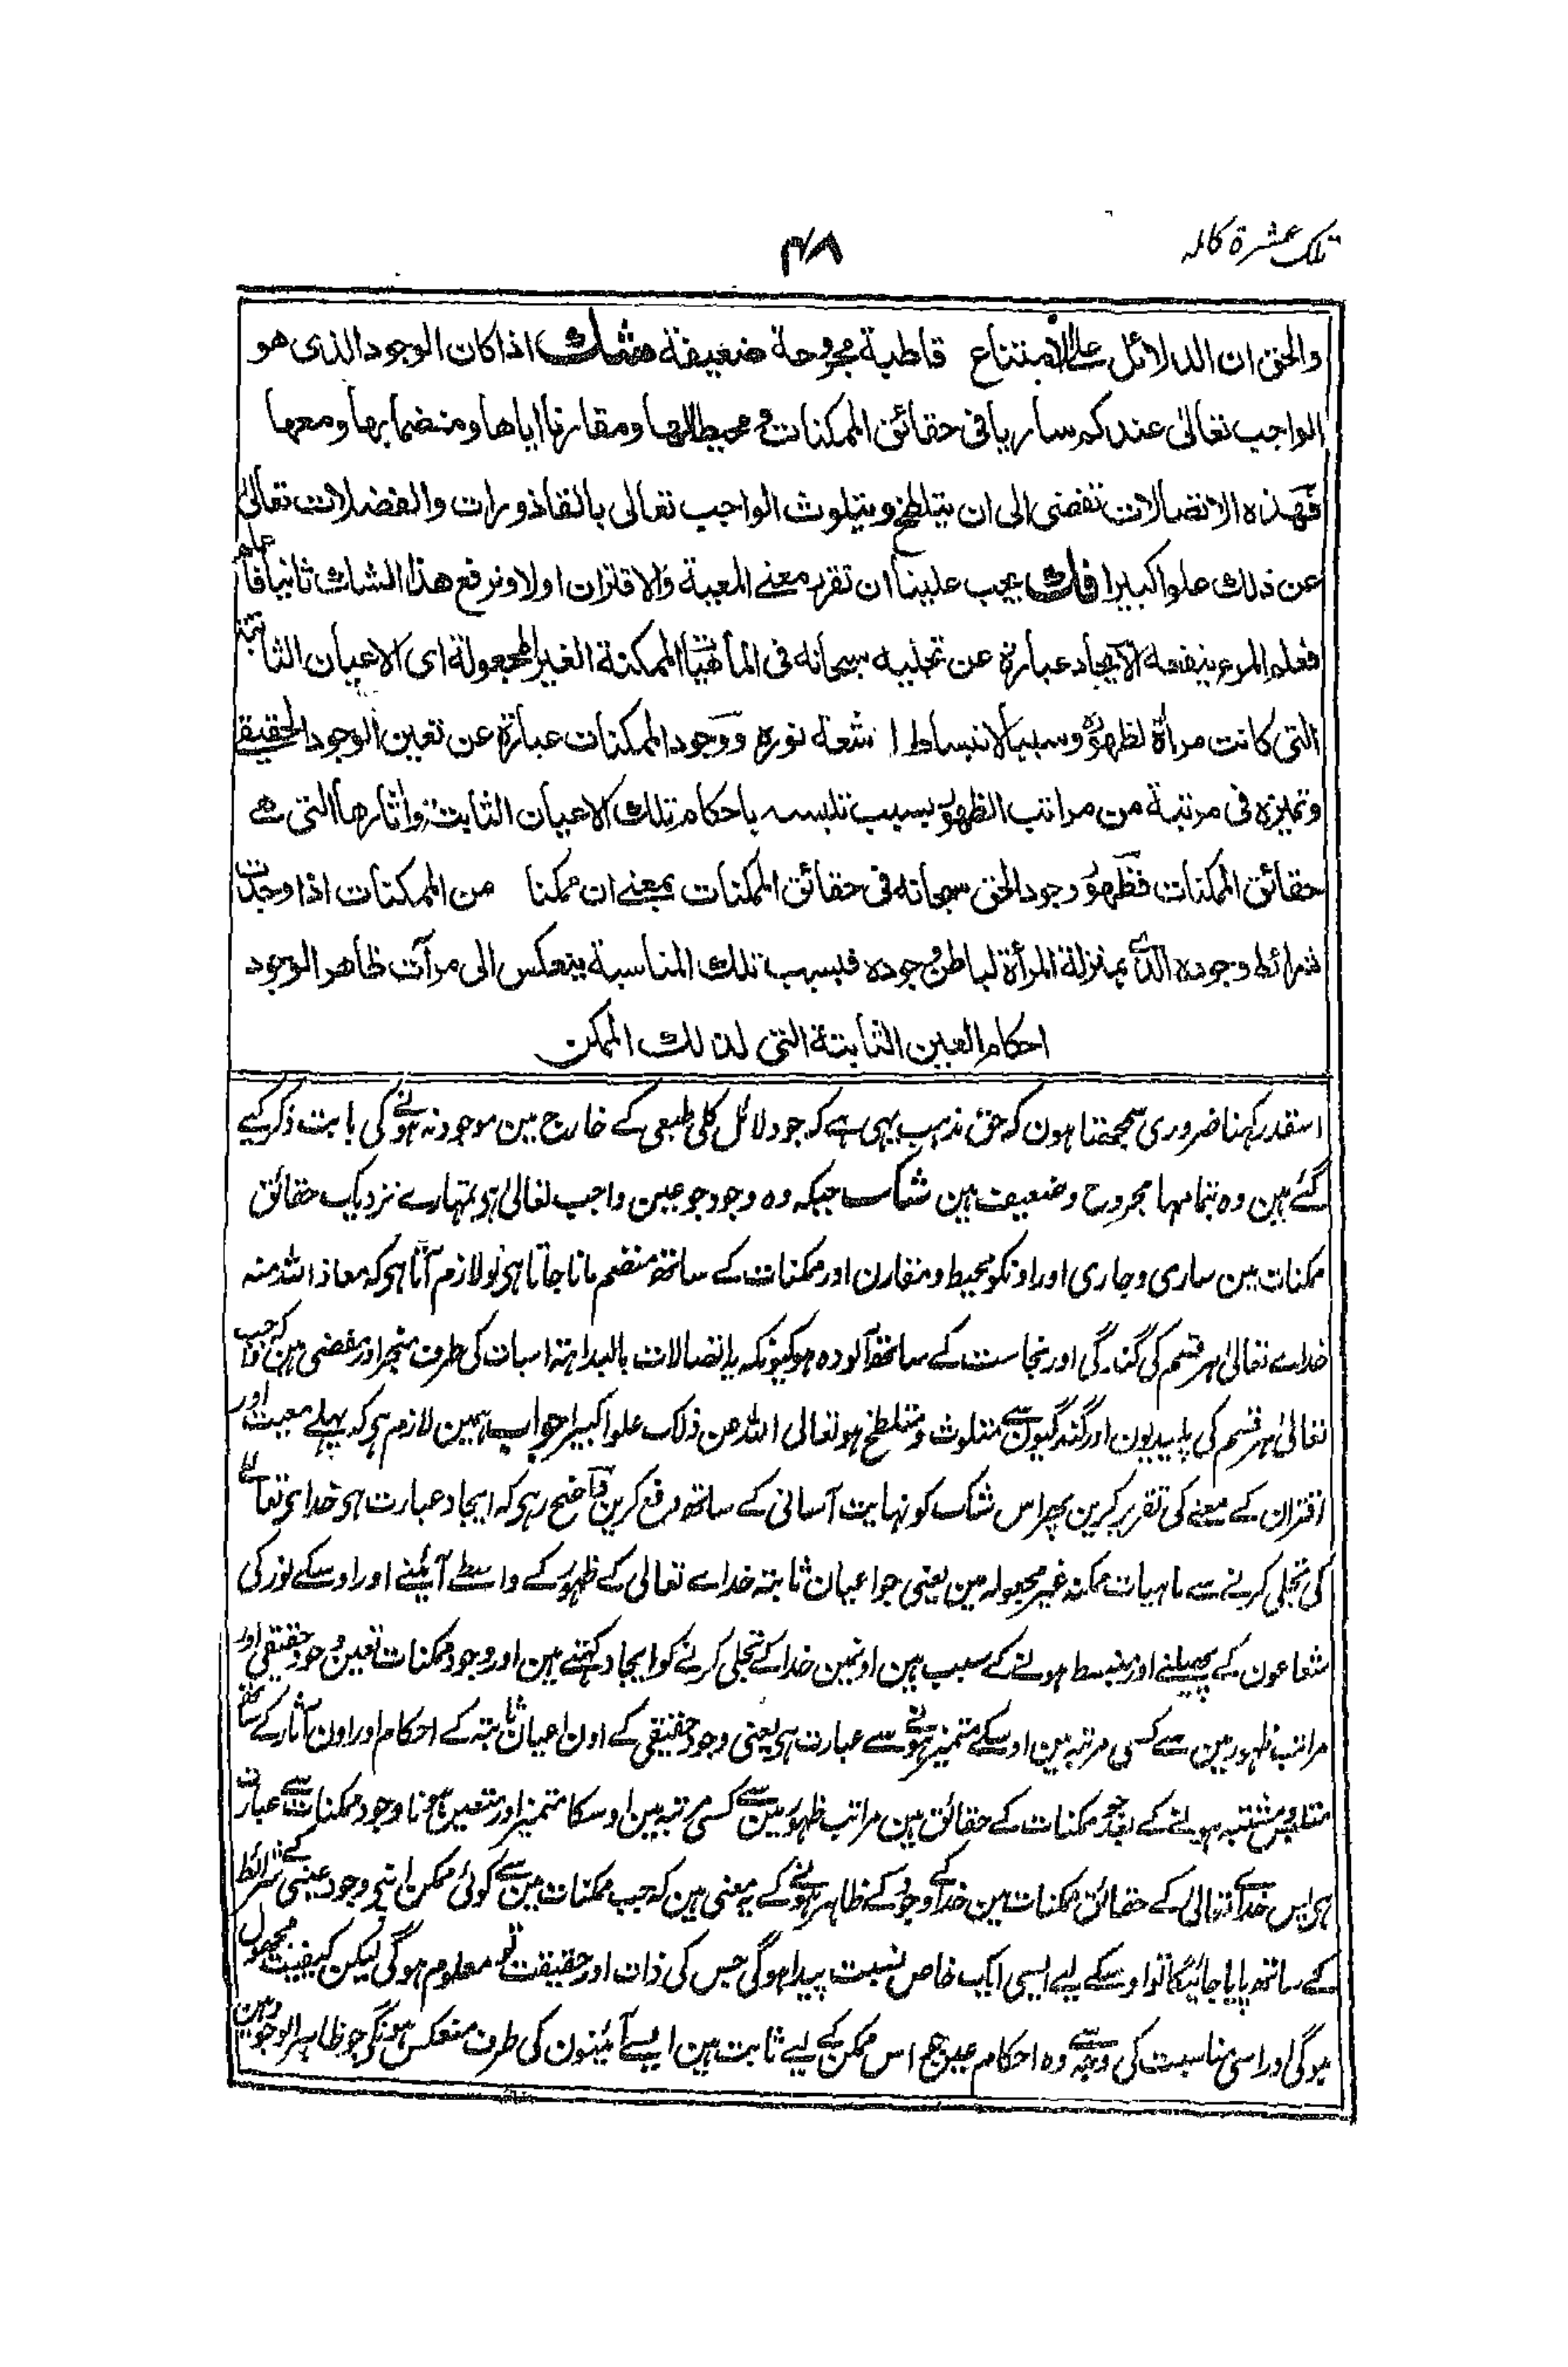 تلک عشرة کاملہ
۴۸
والحق ان الدلائل علی الامتناع قاطبة مجروحة ضعیفة شک اذا کان الوجود الذی هو
الواجب تعالیٰ عندکم ساریا فی حقائق الممکنات و محیطا لها ومقارنا ایاها ومنضما بها ومعها
فهذه الاتصالات تفضی الی ان یتلطخ ویتلوث الواجب تعالی بالقاذورات والفضلات تعالیٰ
عن ذلک علوا کبیرا فلک یجب علینا ان نقرر معنے المعیة والاقتران اولا ونرفع هذا الشک ثانیا فاعلم
فعلم المرء ینفعه الایجاد عبارة عن تجلیه سبحانه فی الماهیات الممکنة الغیر المجعولة ای الاعیان الثابتة
التی کانت مرأة لظهوره وسببا لانبساط اشعة نوره ووجود الممکنات عبارة عن تعین الوجود الحقیقے
وتمیزه فی مرتبة من مراتب الظهور بسبب تلبسه باحکام تلک الاعیان الثابتة واثارها التی هے
حقائق الممکنات فظهور وجود الحق سبحانه فی حقائق الممکنات بمعنے ان ممکنا من الممکنات اذا وجدت
شرائط وجوده بمنزلة المرأة لباطن وجوده فبسبب تلک المناسبة ینعکس الی مرآت ظاهر الوجود
احکام العین الثابتة التی لذلک الممکن
اسقدر کہنا ضروری سمجھتا ہون کہ حق مذہب یہی ہے کہ جو دلائل کلی طبعی کے خارج مین موجود نہ ہونے کی بابت ذکر کیے
گئے ہین وہ بتمامہا مجروح وضعیف ہین شک جبکہ وہ وجود جو عین واجب تعالیٰ ہی تمہارے نزدیک حقائق
ممکنات مین ساری وجاری اور اونکو محیط ومقارن اور ممکنات کے ساتھ منضم مانا جاتا ہی تو لازم آتا ہی کہ معاذ اللہ منہ
خداے تعالیٰ ہر قسم کی گندگی اور نجاست کے ساتھ آلودہ ہو کیونکہ یہ اتصالات بالبداہتہ اسبات کی طرف منجر اور مفضی ہین کہ واجب
تعالیٰ ہر قسم کی پلیدیون اور گندگیون سے متلوث ومتلطخ ہو تعالی اللہ عن ذلک علوا کبیرا جواب ہمین لازم ہی کہ پہلے معیت اور
اقتران کے معنے کی تقریر کرین پھر اس شک کو نہایت آسانی کے ساتھ رفع کرین واضح رہی کہ ایجاد عبارت ہی خداے تعالے
کی تجلی کرنے سے ماہیات ممکنہ غیر مجعولہ مین یعنی جو اعیان ثابتہ خداے تعالی کے ظہور کے واسطے آیئنے اور اوسکے نور کی
شعاعون کے پھیلنے اور منبسط ہونے کے سبب ہین اونمین خدا کے تجلی کرنے کو ایجاد کہتے ہین اور وجود ممکنات تعین وجود حقیقی اور
مراتب ظہور مین سے کسی مرتبہ مین اوسکے متمیز ہونے سے عبارت ہی یعنی وجود حقیقی کے اون اعیان ثابتہ کے احکام اور اون آثار کے ساتھ
متلبس ومشتبہ ہونے کے بعد جو ممکنات کے حقائق ہین مراتب ظہور مین سے کسی مرتبہ مین اوسکا متمیز اور متعین ہونا وجود ممکنات سے عبارت
ہی پس خداے تعالی کے حقائق ممکنات مین خدا کے وجود کے ظاہر ہونے کے یہ معنی ہین کہ جب ممکنات مین سے کوئی ممکن اپنے وجود عینی کے شرائط
کے ساتھ پایا جائیگا تو اوسکے لیے ایسی ایک خاص نسبت پیدا ہوگی جس کی ذات اور حقیقت تو معلوم ہوگی لیکن کیفیت مجہول
ہوگی اور اسی مناسبت کی وجہ سے وہ احکام عین جو اس ممکن کے لیے ثابت ہین ایسے آیئنون کی طرف منعکس ہونگے جو ظاہر الوجود ہین